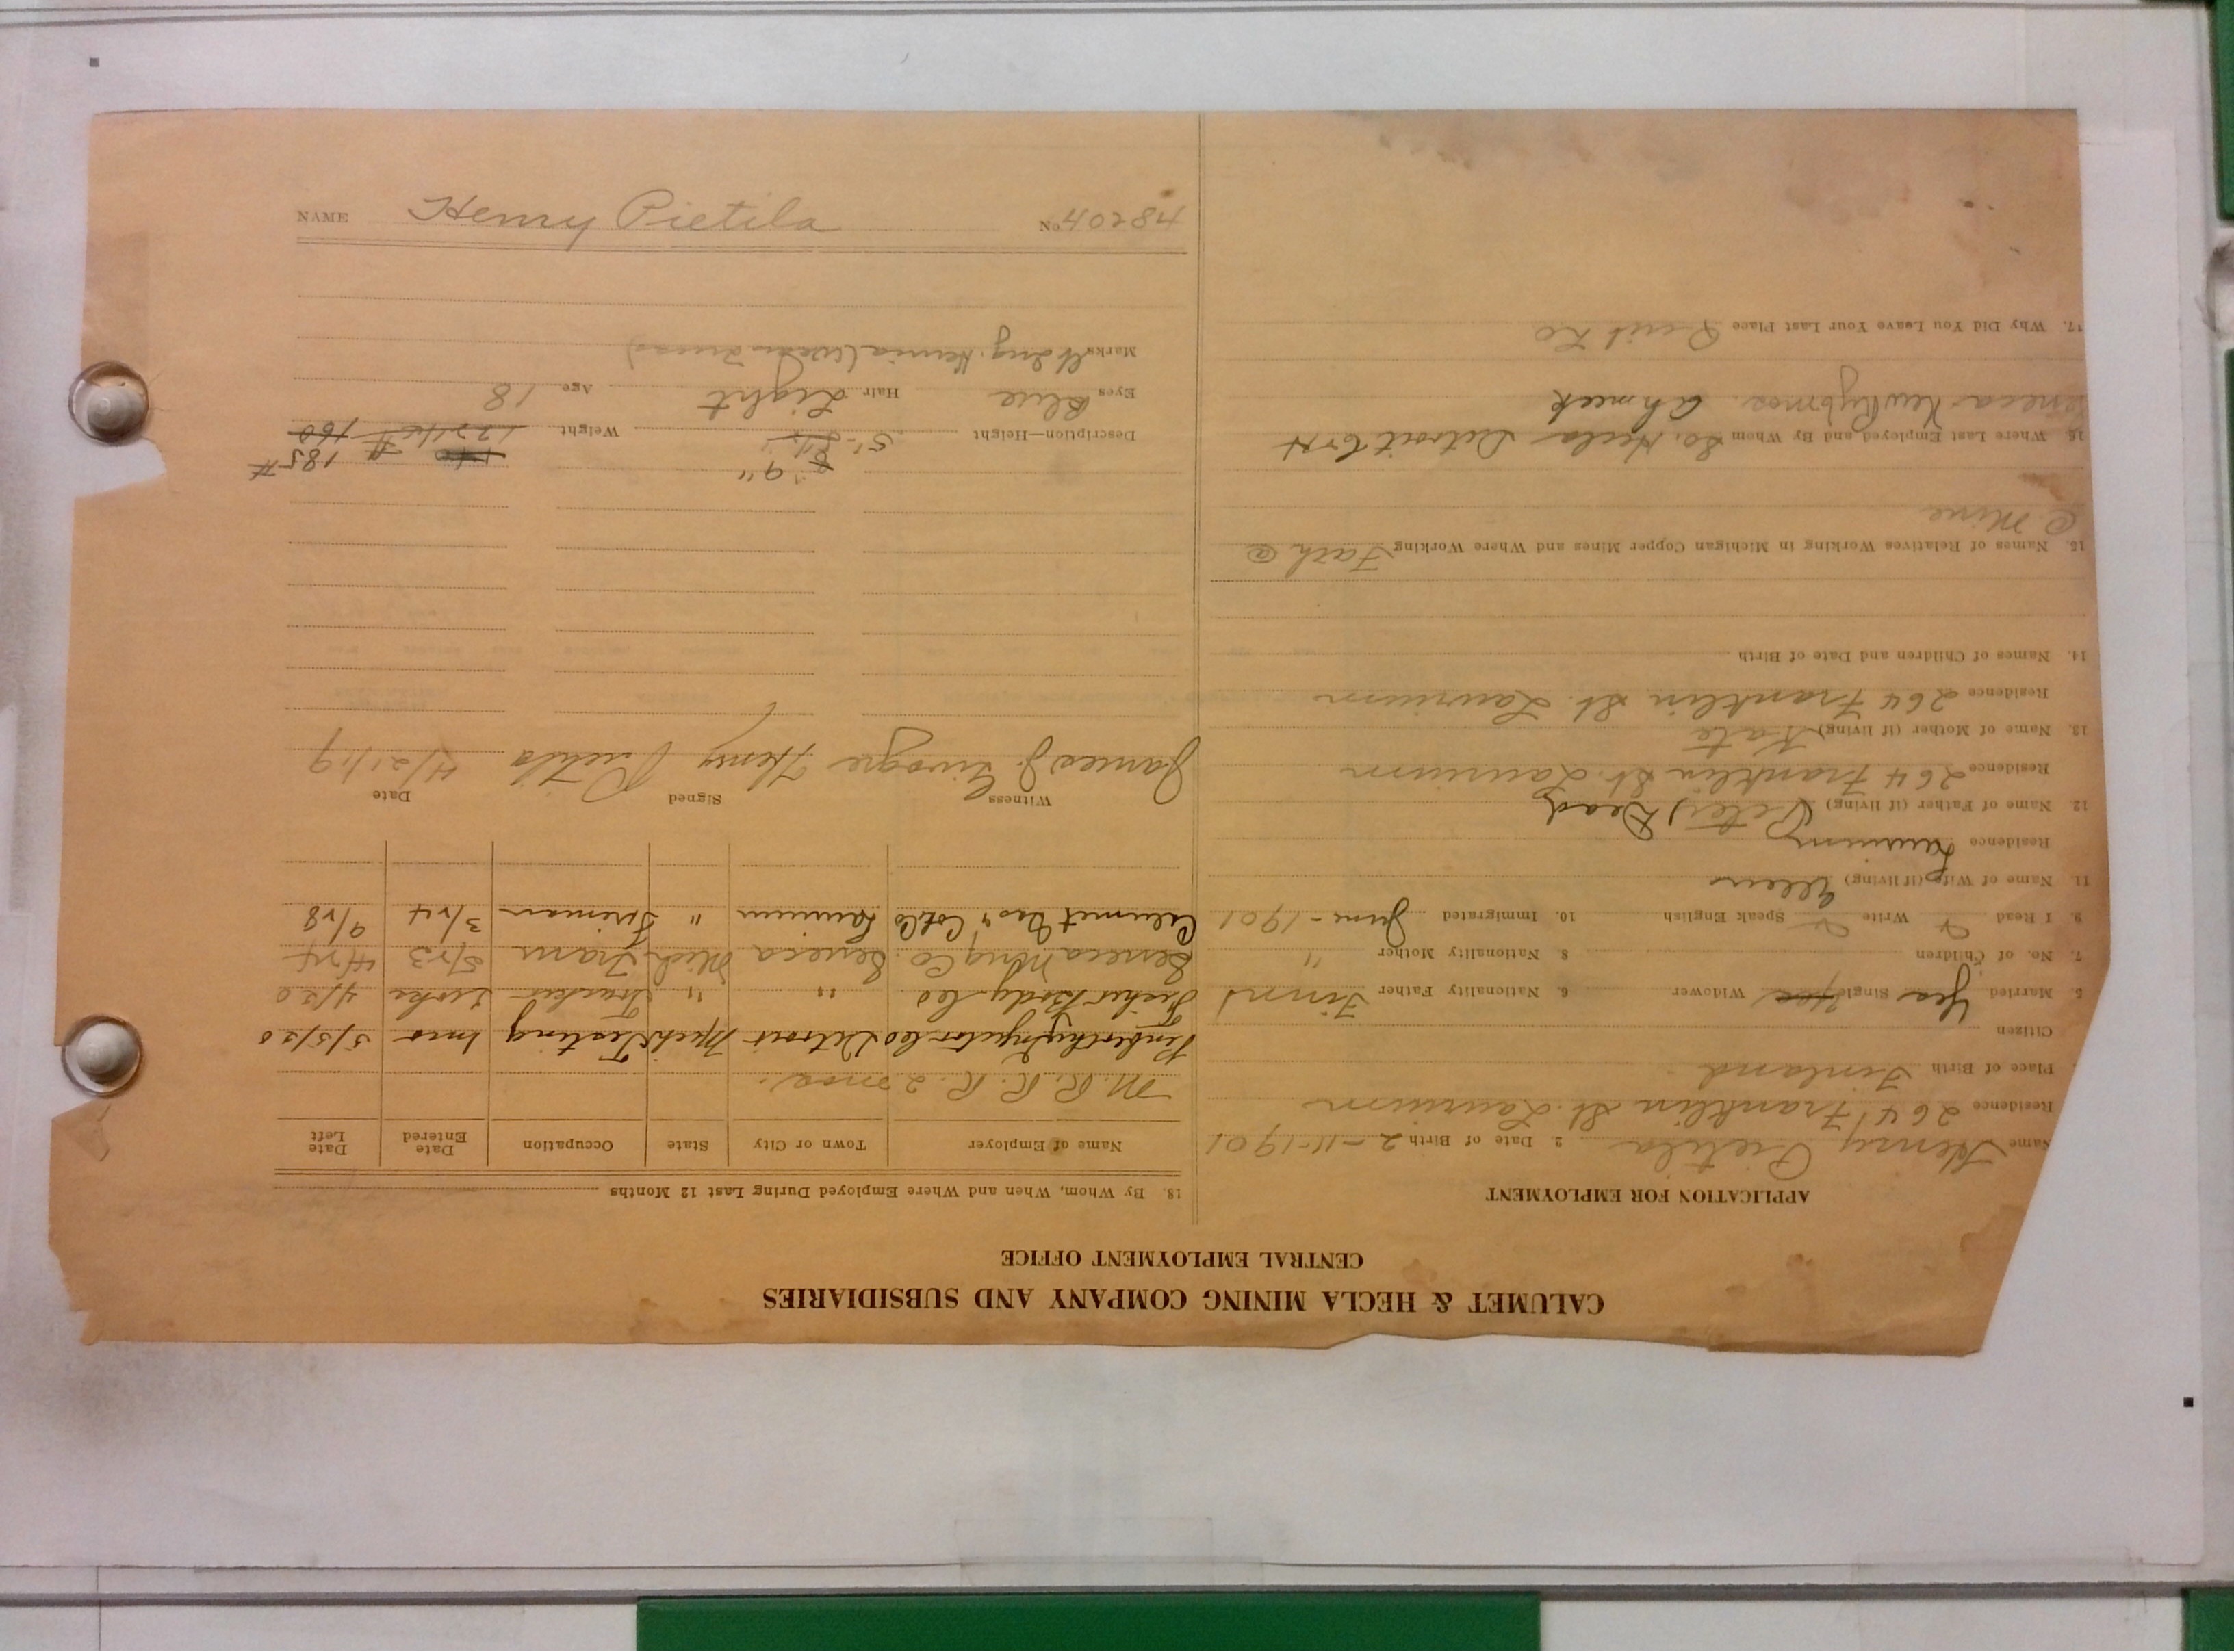 CALUMET & HECLA MINING COMPANY AND SUBSIDIARIES
CENTRAL EMPLOYMENT OFFICE
APPLICATION FOR EMPLOYMENT
Name Henry Pietila 2. Date of Birth 2-11-1901
Residence 264 Franklin St. Laurium
Place of Birth Finland
Citizen
5. Married Yes Single Widower 6. Nationality Father Finn
7. No. of Children 8. Nationality Mother "
9. I Read Write Speak English 10. Immigrated June-1901
11. Name of Wife (if living) Ellen
Residence Laurium
12. Name of Father (if living) (Peter) Dead
Residence 264 Franklin St. Laurium
13. Name of Mother (if living) Kate
Residence 264 Franklin St. Laurium
14. Names of Children and Date of Birth
15. Names of Relatives Working in Michigan Copper Mines and Where Working Fath @
C Mine
16. Where Last Employed and By Whom So. Hecla Detroit
Seneca Ahmeek
17. Why Did You Leave Your Last Place Quit
18. By Whom, When and Where Employed During Last 12 Months
Name of Employer Town or City State Occupation Date Entered Date Left
M. R. R. R. 2 mos.
Penberthy Injector Co Detroit Mich Testing 1 mo 5/5/20
Fisher Body Co " " Trucker 2 wks 4/20
Seneca Mng Co. Seneca Mich Tram 5/23 4/24
Calumet Gas & Coke Co Laurium " Fireman 3/24 9/28
Witness Signed Date
James J. Henry Pietila 4/21/19
5' 9" 185 #
Description—Height Weight 160
Eyes Blue Hair Light Age 18
Marks Ing. Hernia (Wears Truss)
NAME Henry Pietila No. 48204